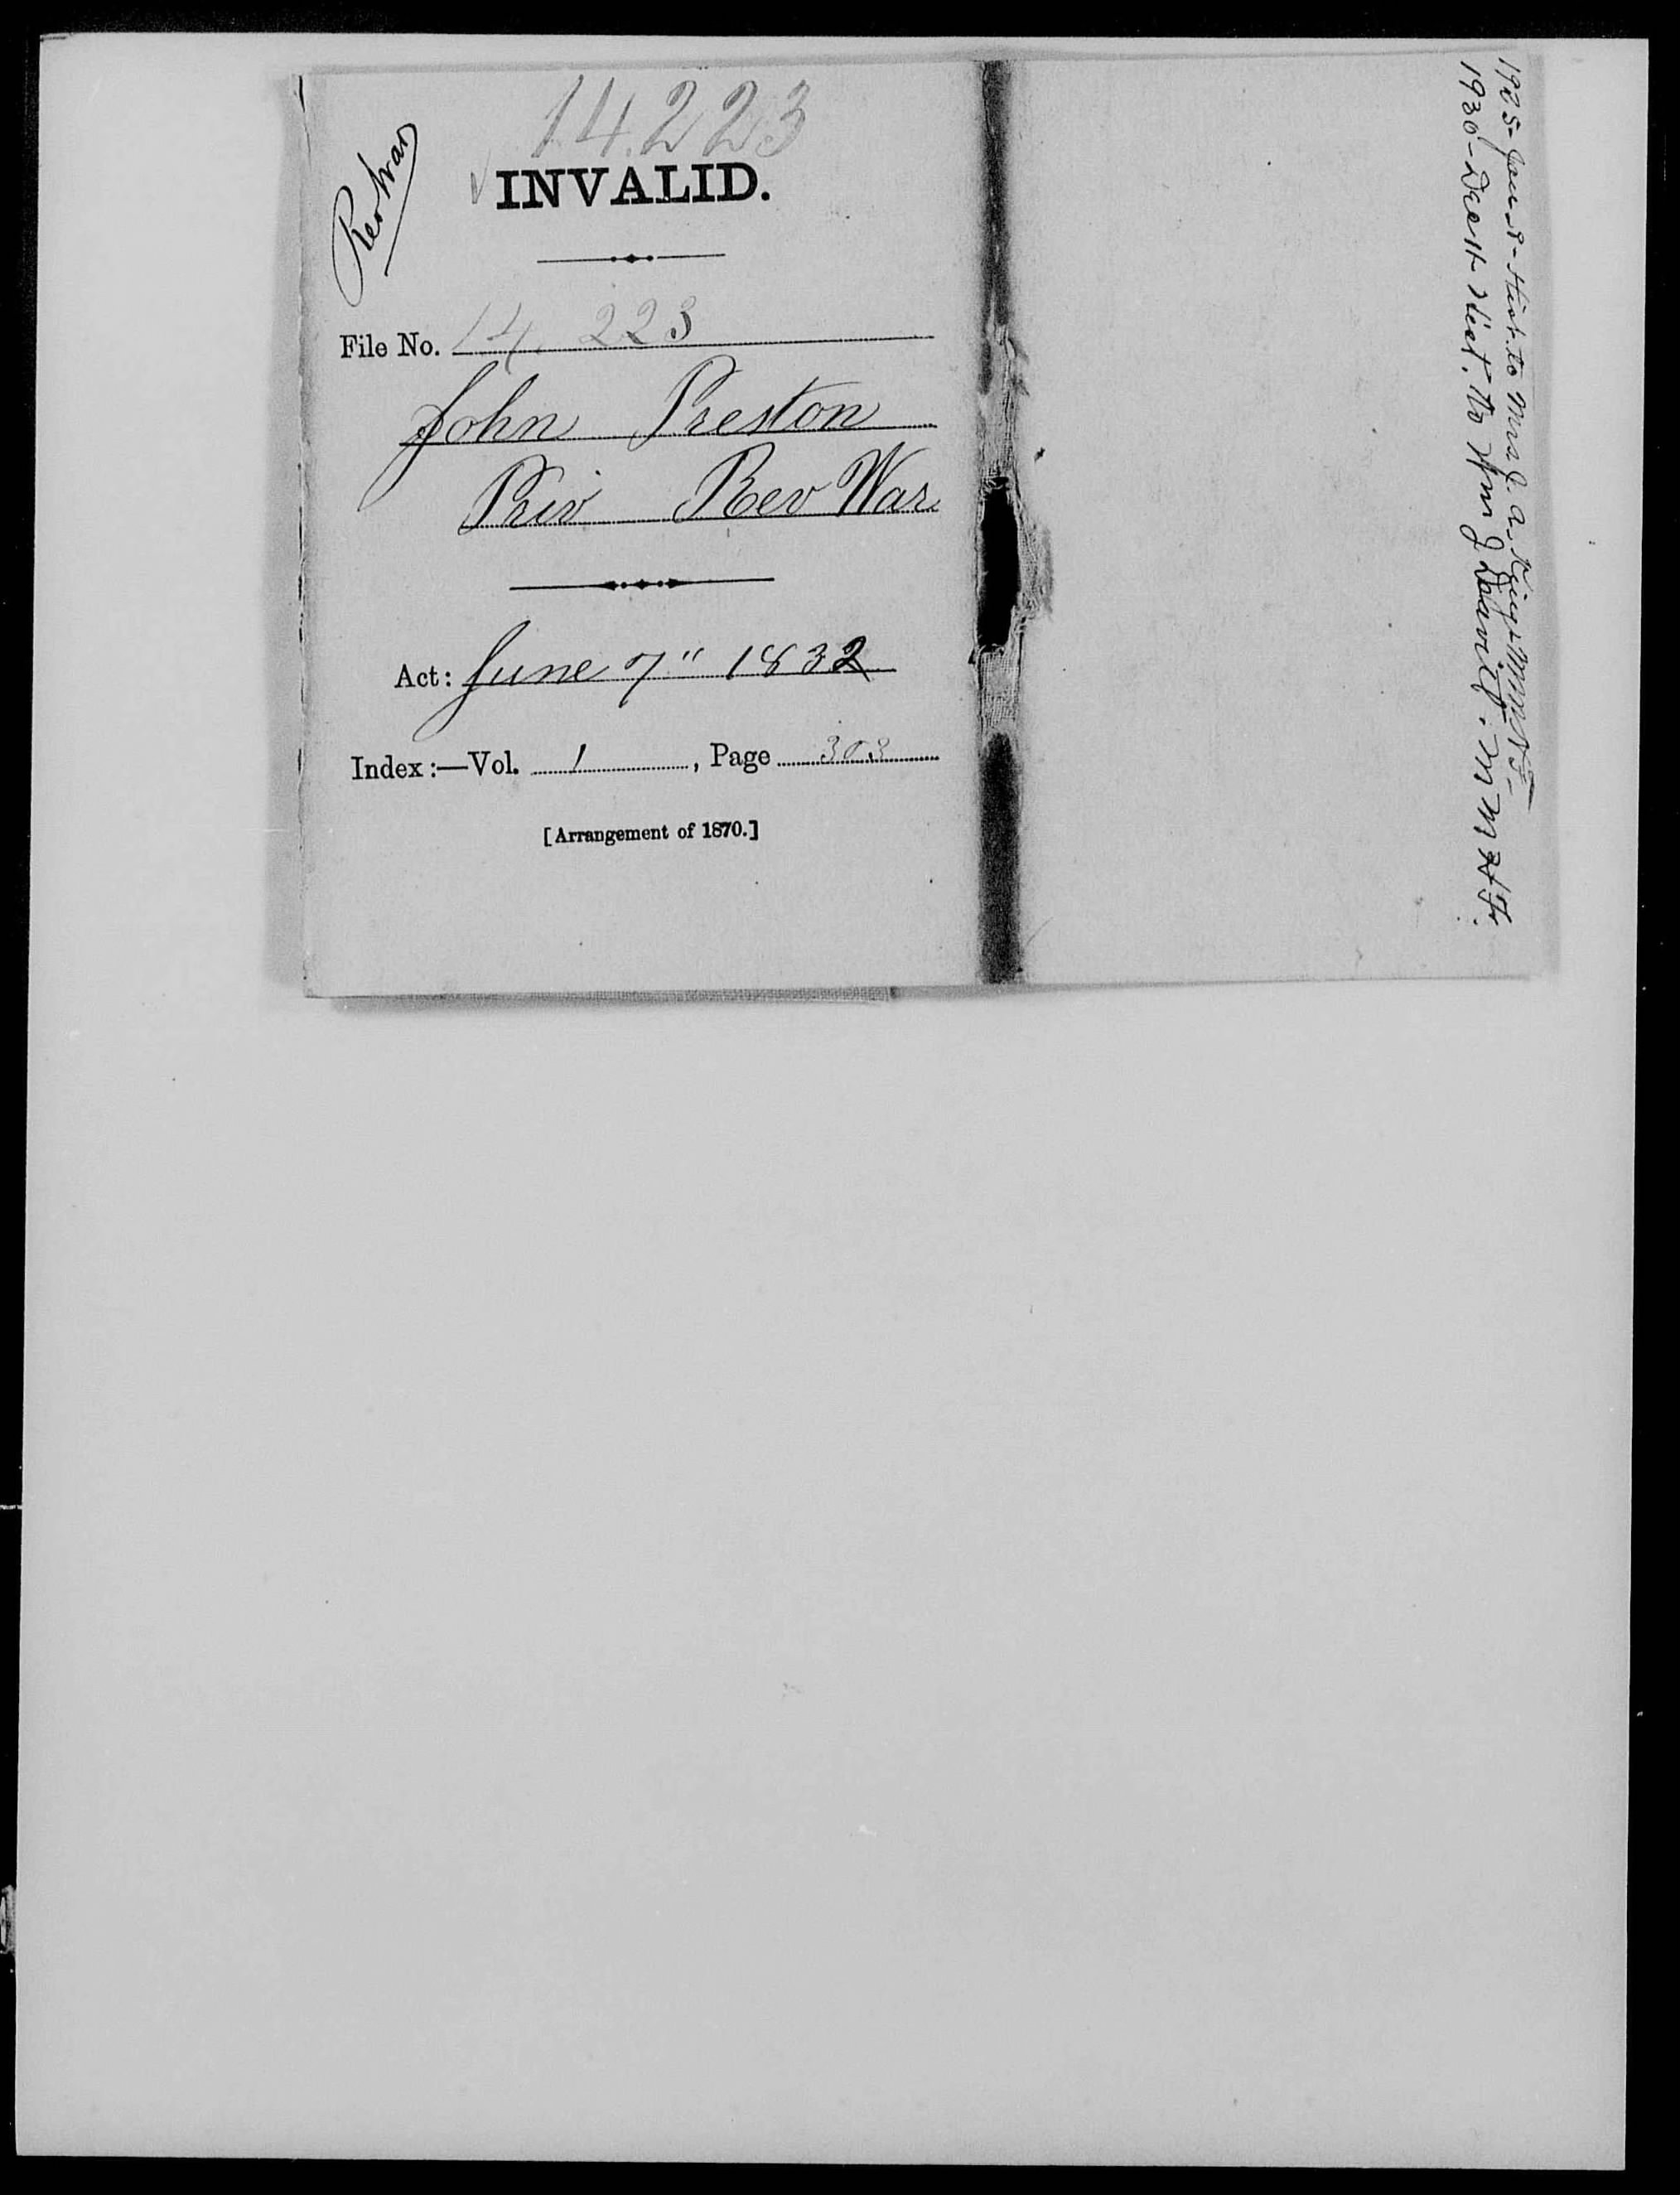 14.223
Rev War
INVALID.
File No. 14.223
John Preston
Priv Rev War
Act: June 7" 1832
Index:—Vol. 1, Page 303
[Arrangement of 1870.]
1925- Hist. to Mrs J. A. King-
1930- Dec 11- Hist. to Wm J